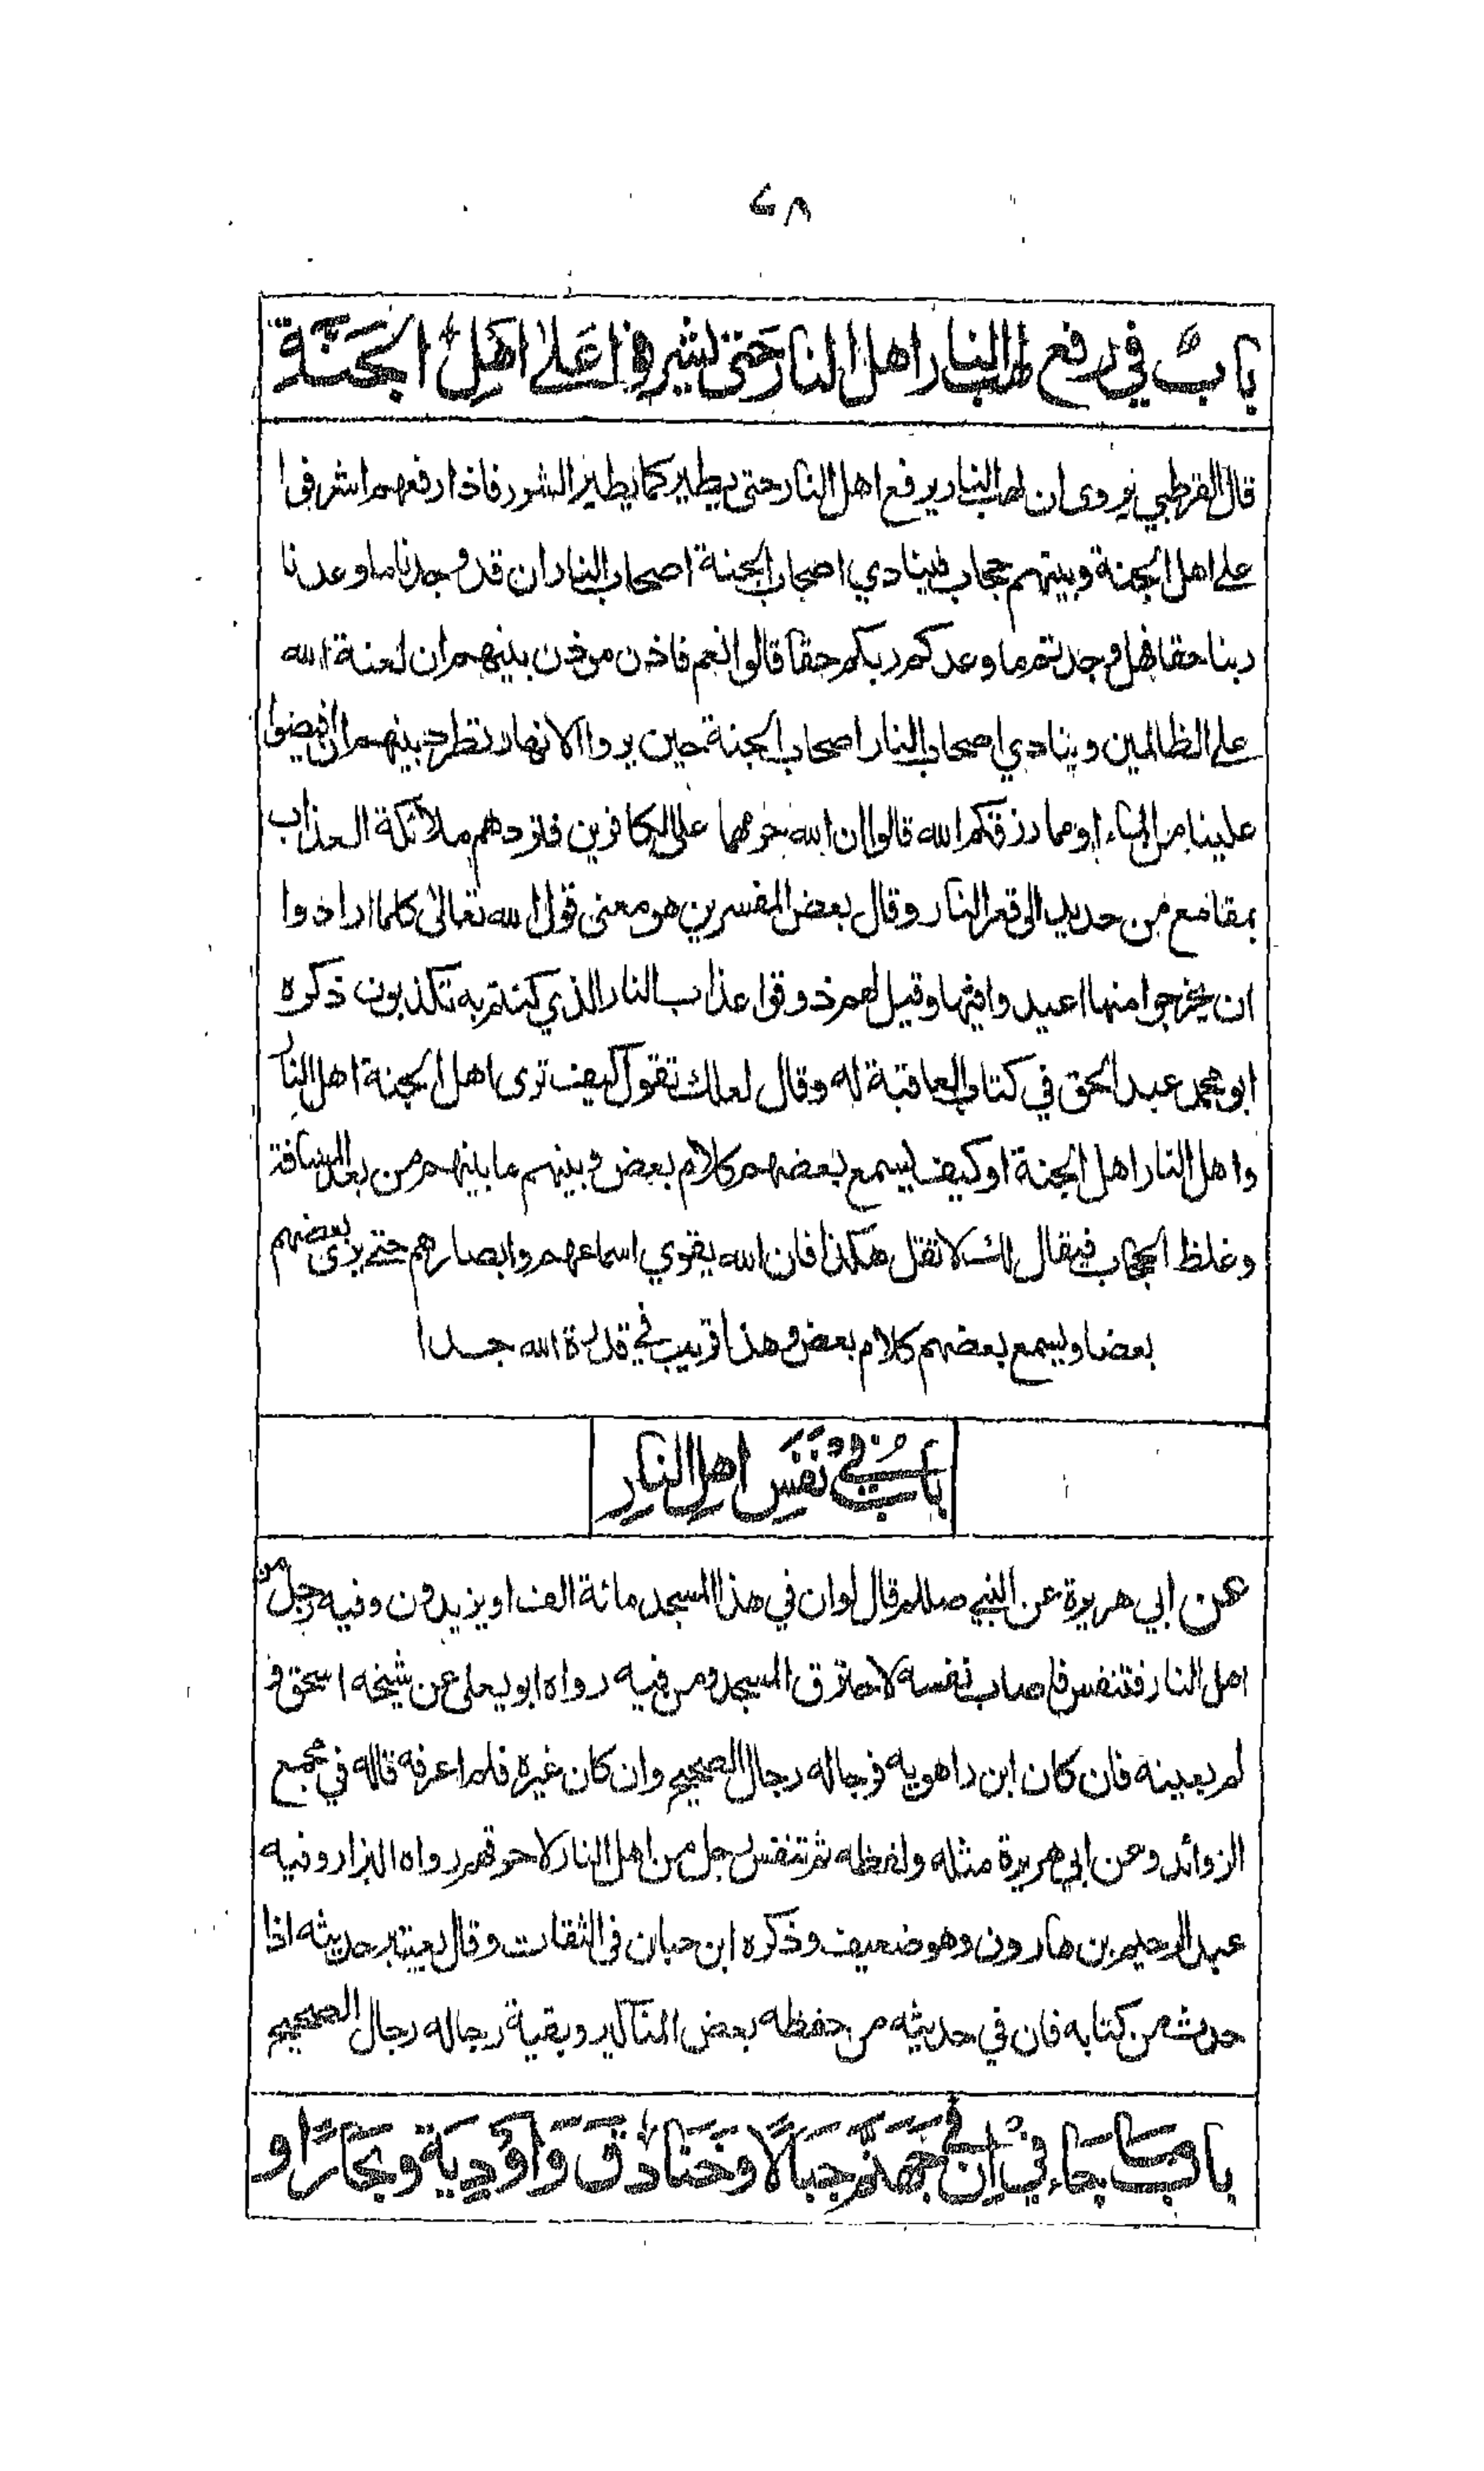 ٤٨
باب في رفع لهب النار اهل النار حتى يشرفوا على اهل الجنة
قال القرطبي يروى ان لهب النار يرفع اهل النار حتى يطير كما يطير الشرر فاذا رفعهم اشرفوا
على اهل الجنة وبينهم حجاب فينادي اصحاب الجنة اصحاب النار ان قد وجدنا ما وعدنا
ربنا حقا فهل وجدتم ما وعدكم ربكم حقا قالوا نعم فاذن موذن بينهم ان لعنة الله
على الظالمين وينادي اصحاب النار اصحاب الجنة حين يروا الانهار تطرد بينهم ان افيضوا
علينا من الماء او مما رزقكم الله قالوا ان الله حرمهما على الكافرين فتردهم ملائكة العذاب
بمقامع من حديد الى قعر النار وقال بعض المفسرين هو معنى قول الله تعالى كلما ارادوا
ان يخرجوا منها اعيدوا فيها وقيل لهم ذوقوا عذاب النار الذي كنتم به تكذبون ذكره
ابو محمد عبد الحق في كتاب العاقبة له وقال لعلك تقول كيف ترى اهل الجنة اهل النار
واهل النار اهل الجنة او كيف يسمع بعضهم كلام بعض وبينهم ما بينهم من بعد المسافة
وغلظ الحجاب فيقال لك لا تقل هكذا فان الله يقوي اسماعهم وابصارهم حتى يرى بعضهم
بعضا ويسمع بعضهم كلام بعض وهذا قريب في قدرة الله جدا
باب في نفس اهل النار
عن ابي هريرة عن النبي صللم قال لو ان في هذا المسجد مائة الف او يزيدون وفيه رجل من
اهل النار فتنفس فاصاب نفسه لاحترق المسجد ومن فيه رواه ابو يعلى عن شيخه اسحق و
لم يعينه فان كان ابن راهويه فرجاله رجال الصحيح وان كان غيره فلم اعرفه قاله في مجمع
الزوائد وعن ابي هريرة مثله ولفظه ثم تنفس رجل من اهل النار لاحرقهم رواه البزار وفيه
عبد الرحيم بن هارون وهو ضعيف وذكره ابن حبان في الثقات وقال يعتبر حديثه اذا
حدث من كتابه فان في حديثه من حفظه بعض المناكير وبقية رجاله رجال الصحيح
باب ما جاء في ان في جهنم جبالا وخنادق واودية وبحارا و